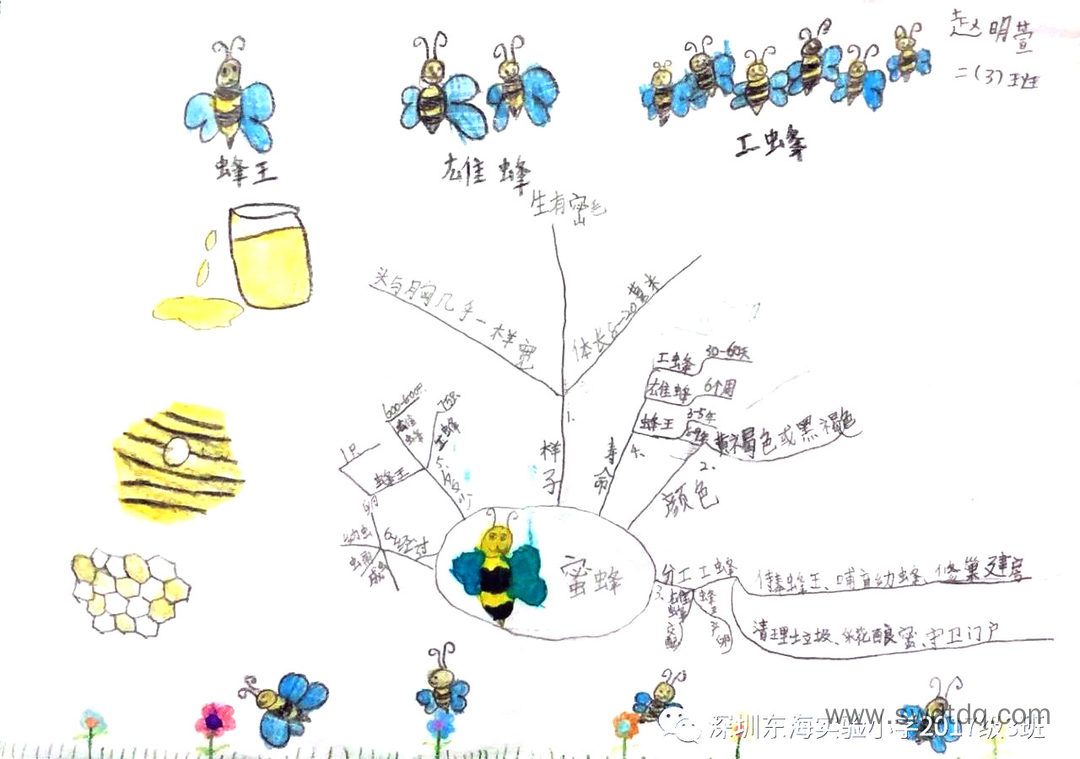 赵明萱
二(3)班
蜂王
雄蜂
工蜂
生有密毛
头与胸几乎一样宽
体长8-20毫米
1.
样子
工蜂 30-60天
雄蜂 6个周
蜂王 3-5年
8-9年
4.
寿命
黄褐色或黑褐色
2.
颜色
600-800只
雄蜂
工蜂
1只
蜂王
5.
多少
6.经过
卵
幼虫
虫蛹
成虫
蜜蜂
分工
3.
工蜂
侍奉蜂王、哺育幼蜂、修巢建房
清理垃圾、采花酿蜜、守卫门户
雄蜂
交配
蜂王
产卵
深圳东海实验小学2017级3班
www.swatdq.com